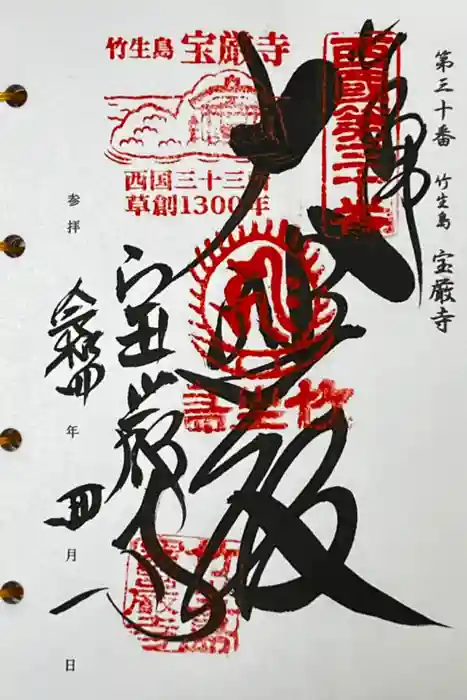 第三十番 竹生島 宝厳寺
西國第三十番
竹生島 宝厳寺
西国三十三所
草創1300年
大悲殿
竹生島
宝厳寺
参拝 令和四年四月一日